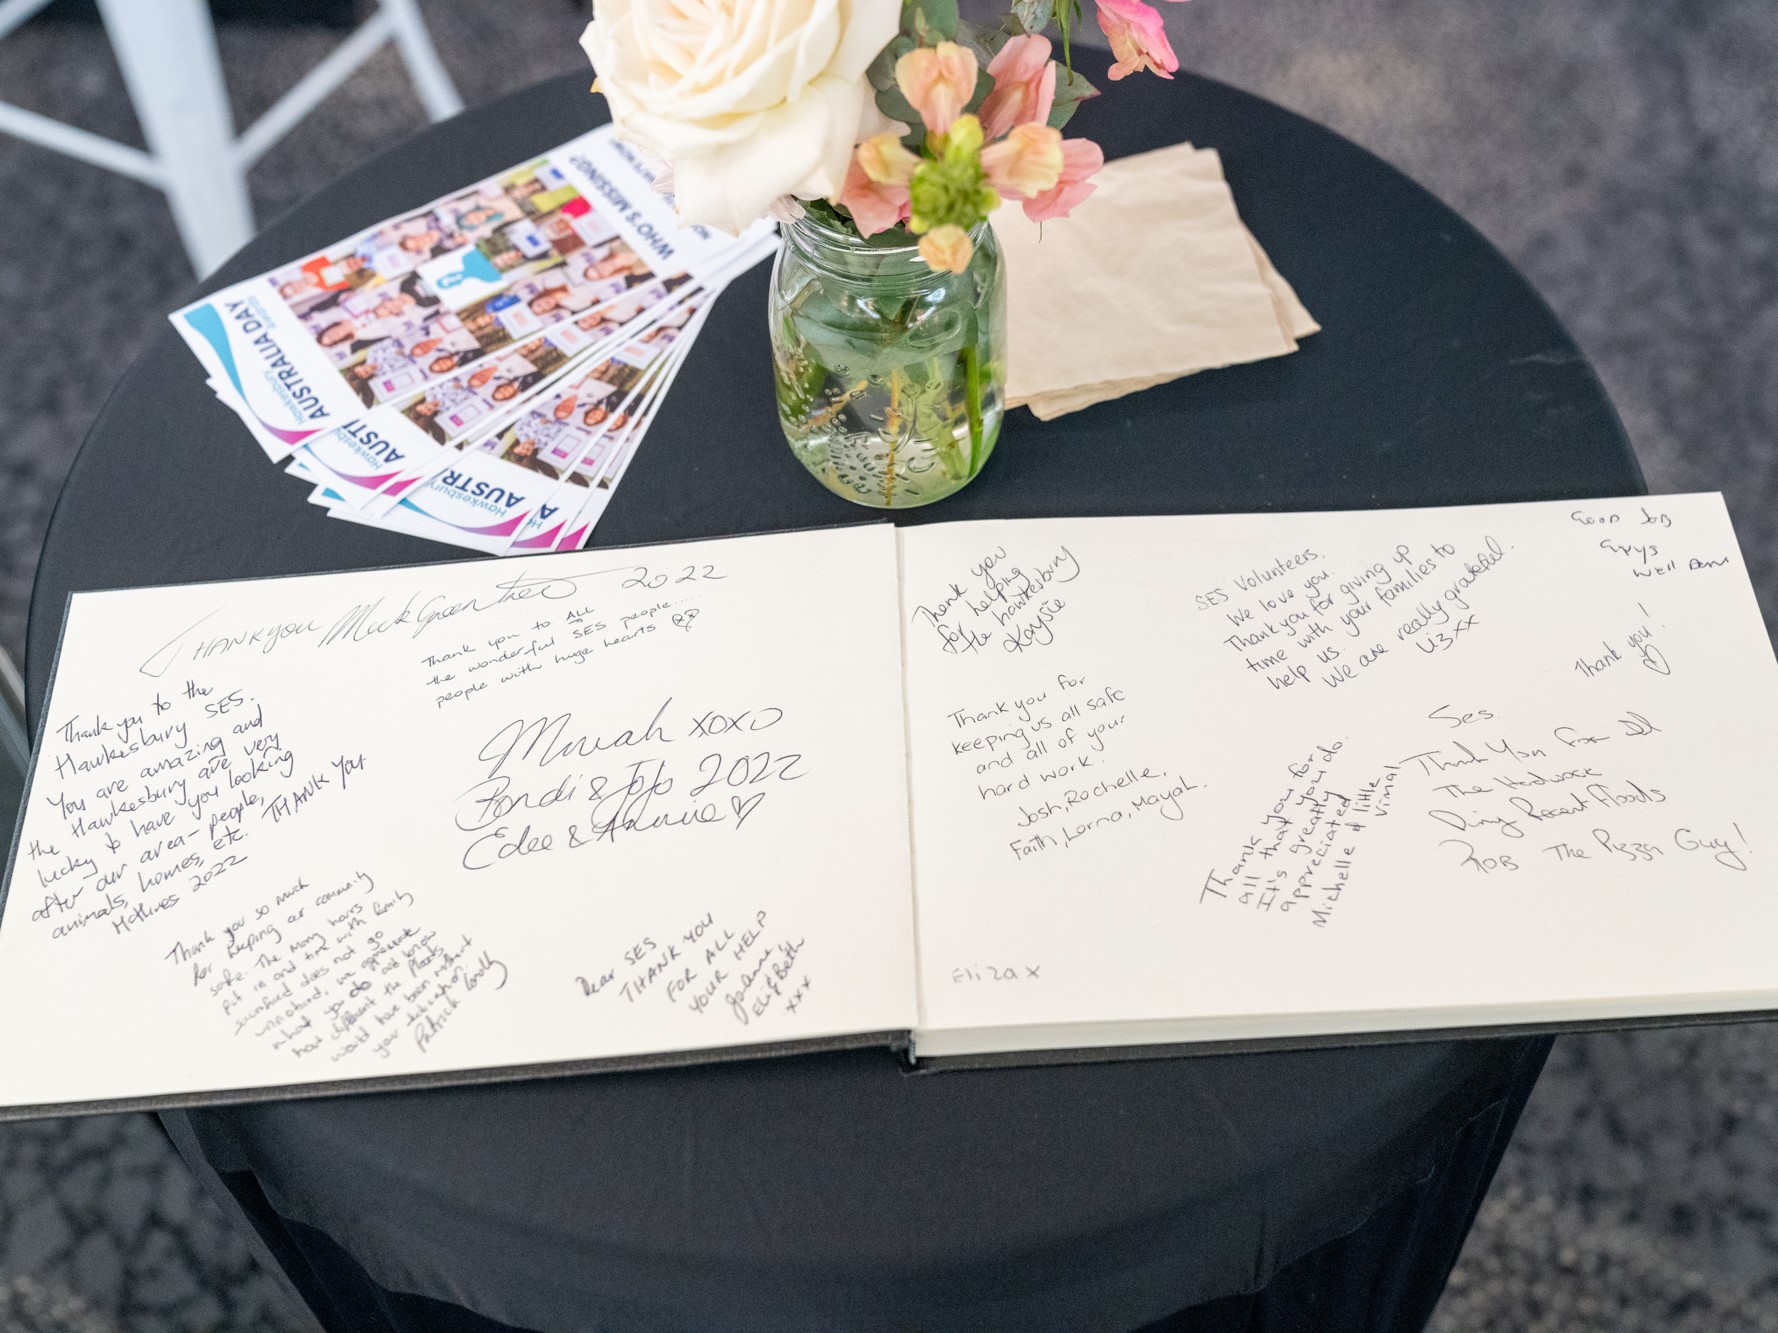 WHO'S MISSING?
Hawkesbury
AUSTRALIA DAY
Awards
Hawkesbury
AUSTR
THANKYOU 2022
Thank you to ALL
the wonderful SES people.....
people with huge hearts
Thank you to the
Hawkesbury SES.
You are amazing and
the Hawkesbury are very
lucky to have you looking
after our area - people,
animals, homes, etc. THANK YOU
2022
xoxo
Bondi & JoJo 2022
Edee & Annie
Thank you so much
for keeping our community
safe. The many hours
put in and time with family
sacrificed does not go
unnoticed, we appreciate
what you do and know
how different the floods
would have been without
your dedication.
Patrick
Dear SES
THANK YOU
FOR ALL
YOUR HELP
Joanne
Eli & Beth
xxx
Thank you
for helping
the hawkesbury
Kaysie
Thank you for
keeping us all safe
and all of your
hard work.
Josh, Rochelle,
Faith, Lorna, Mayah.
Eliza x
SES Volunteers.
We love you.
Thank you for giving up
time with your families to
help us.
We are really grateful.
Liz xx
GOOD JOB
Guys
Well Done
Thank you!
Thank you for
all that you do.
It's greatly
appreciated
Michelle & little
Vimal
Ses
Thank You For All
The Hardwork
During Recent Floods
Rob The Pizza Guy!